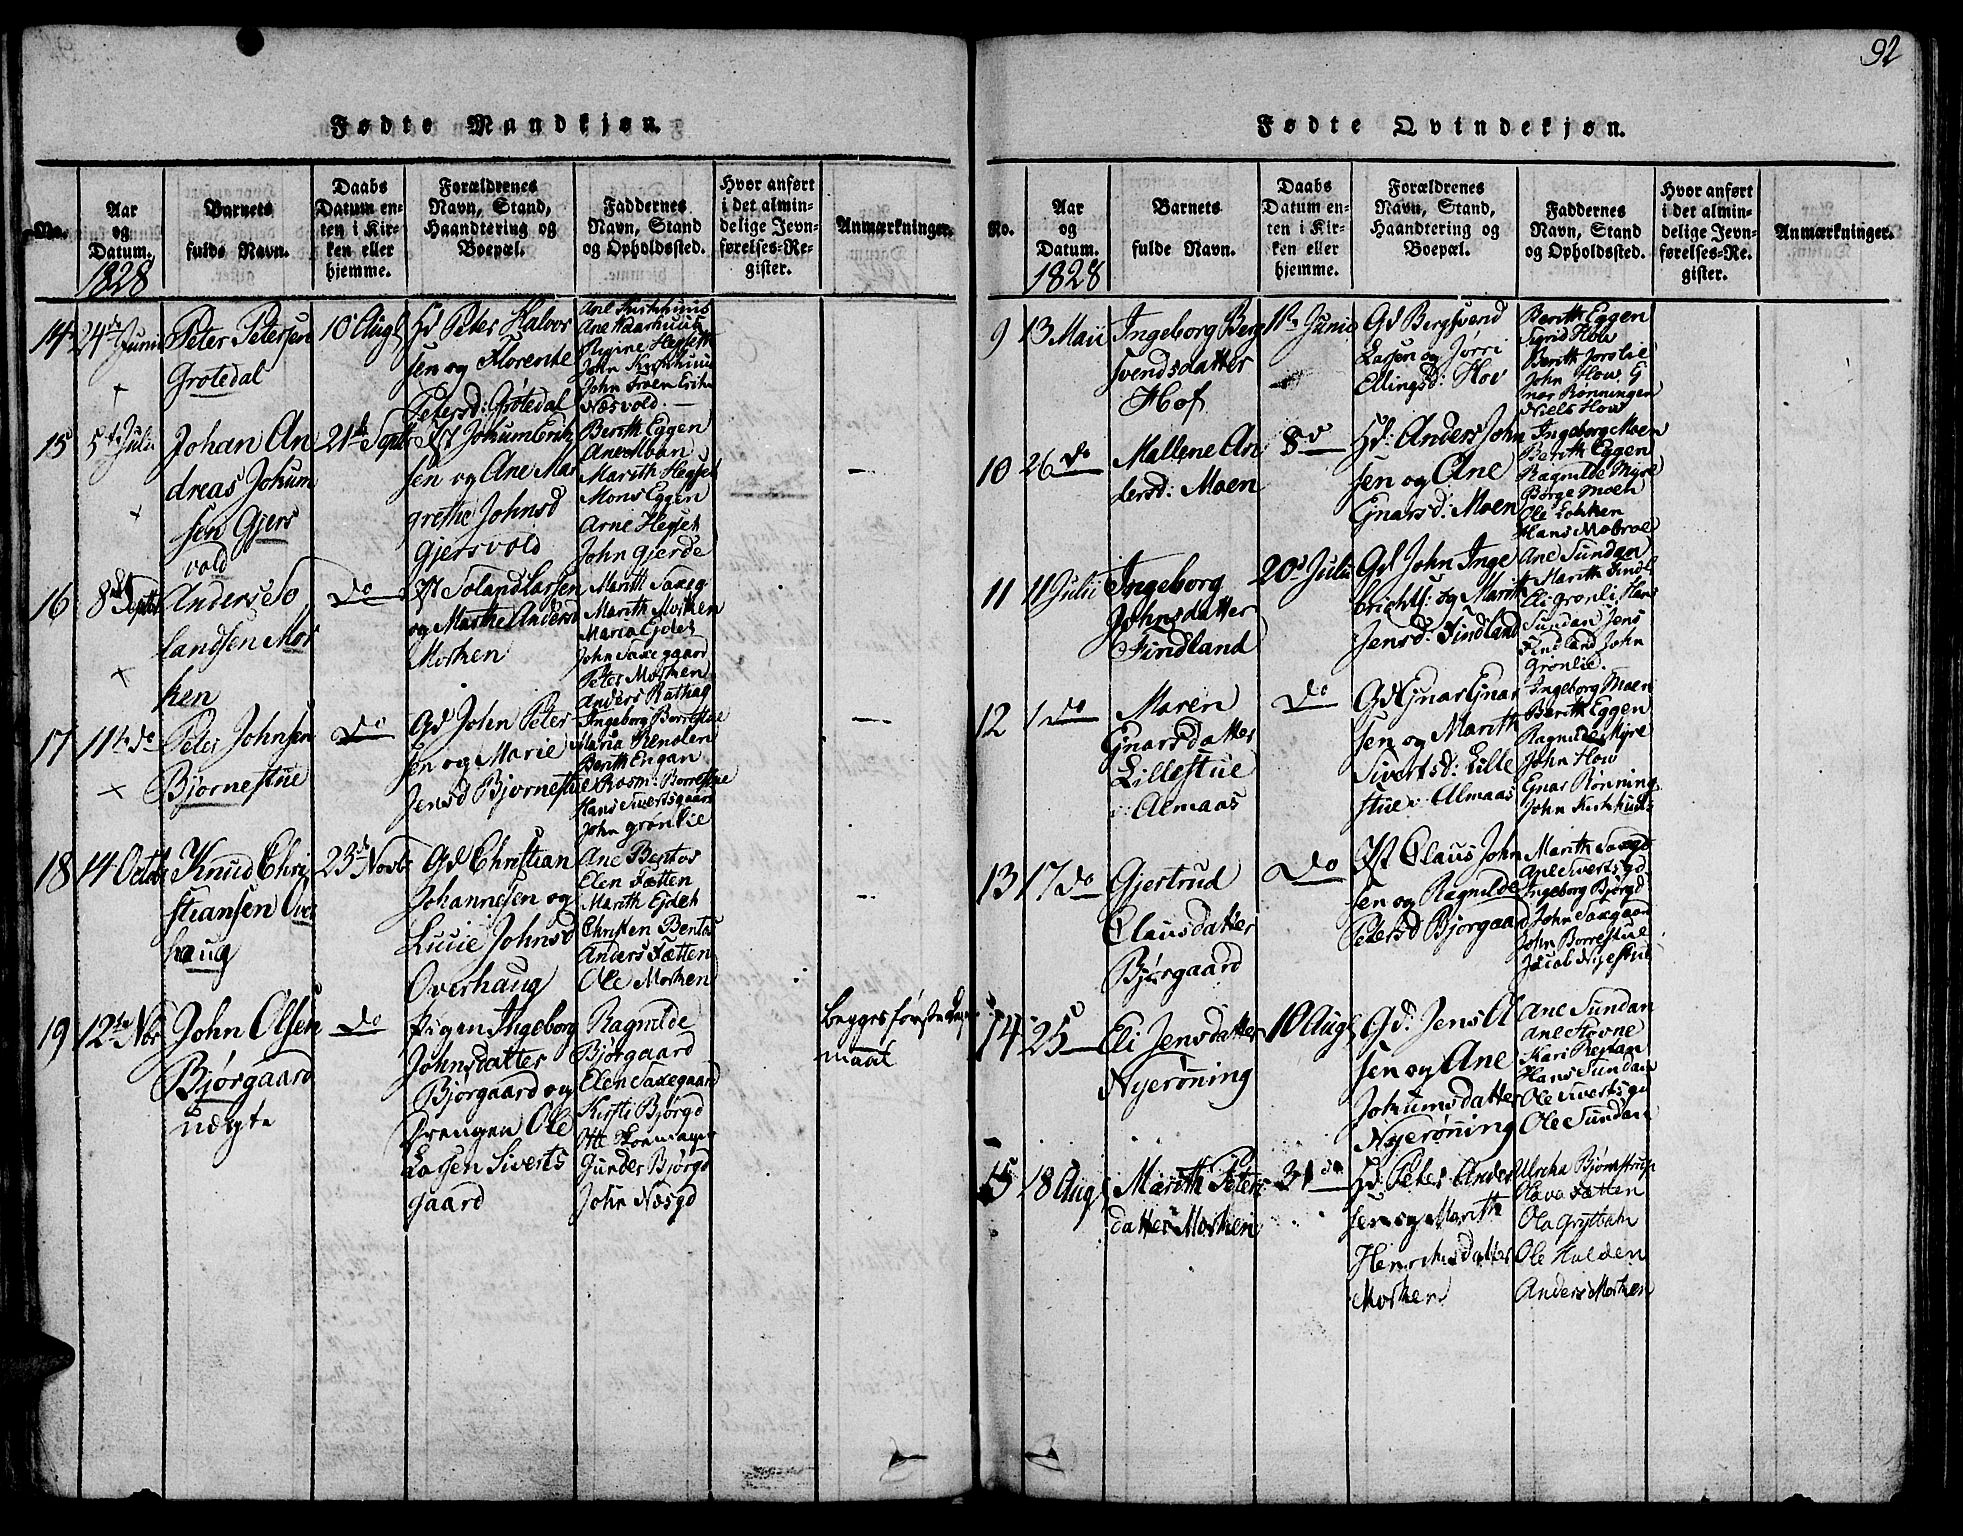 92
Fødte Mandkjøn.
No.
Aar
og
Datum.
1828
Barnets
fulde Navn.
Daabs
Datum en-
ten i Kir-
ken eller
hjemme.
Forældrenes
Navn, Stand,
Haandtering og
Boepæl.
Faddernes
Navn, Stand
og Opholdssted.
Hvor anført
i det almin-
delige Jevn-
førelses-Re-
gister.
Anmærkninger.
14
24de Junii
Peter Petersen
Grotedal
10 Augs
Hd Peter Halvor
sen og Florentte
Petersd: Grøtedal
Ane Kirkhuus
Ane Aaarhuus
Regine Hegseth
John Kirkhuus
John
Næsvold
15
5te Julii
Johan An
dreas Johum
sen Gjers
vold
21de Septbr
Johum Erik
sen og Ane Mar
grethe Johnsd
Gjersvold
Berith Eggen
Ane Moan
Marith Hegset
Mons Eggen
Arne Hegset
John Gjerde
16
8de Septbr
Anders So
landsen Mor
ken
Do
Solandlarsen
og Marthe Andersd
Morken
Maritt Saxeg
Marith Morken
Maria Ejdet
John Saxegaard
Peter Morken
Anders Rathag
17
11te do
Peter Johnsen
Bjørnestue
Do
Gd John Peter
sen og Marie
Jensd Bjørnestue
Ingeborg Borrestue
Maria Renslen
Berith Engan
Rasm: Borrestue
Hans Sivertsgaard
John Grønlie
18
14 Octbr
Knud Chri
stiansen Over
haug
23de Novbr
Gd Christian
Johannesen og
Lucie Johnsd
Overhaug
Ane Bentos
Elen Fætten
Marith Ejdet
Christen Bentos
Anders Fætten
Ole Morken
19
12te Nov
John Olsen
Bjørgaard
uægte
Do
Pigen Ingeborg
Johnsdatter
Bjørgaard og
Drengen Ole
Larsen Siverts
gaard
Ragnilde
Bjørgaard
Elen Saxegaard
Kirsti Bjørgd
Gunder Bjørgd
John Næsgd
begges første
maal
Fødte Qvindekjøn.
No.
Aar
og
Datum.
1828
Barnets
fulde Navn.
Daabs
Datum en-
ten i Kir-
ken eller
hjemme.
Forældrenes
Navn, Stand,
Haandtering og
Boepæl.
Faddernes
Navn, Stand
og Opholdssted.
Hvor anført
i det almin-
delige Jevn-
førelses-Re-
gister.
Anmærkninger.
9
13 Maii
Ingeborg Berg
svendsdatter
Hof
1ste Junio
Gd Bergsvend
Larsen og Jørri
Ellingsd: Hov
Berith Eggen
Sigrid How
Berith Jorslie
John How G
nar Rønningen
Niels How
10
26 do
Mallene An
dersd: Moen
8de
Hd: Anders John
sen og Ane
Gnarsd: Moen
Ingeborg Moen
Berith Eggen
Ragnilde Myre
Børge Moen
Ole Løkken
Hans Mobroe
11
11 Julii
Ingeborg
Johnsdatter
Findland
20de Julii
Gd John Inge
brichts: og Maritt
Jensd: Findland
Ane Sundan
Marith Findl
Eli Grønli Hans
Sundan Jens
Findland John
Grønlie.
12
1 do
Maren
Gnarsdatter
Lillestue
i Almaas
Do
Gd Gnar Gnar
sen og Marith
Sivertsd: Lille
stue i Almaas
Ingeborg Moen
Berith Eggen
Ragnilde Myre
John How
Gnar Rønning
John Kirkhuus
13
17 do
Gjertrud
Clausdatter
Bjørgaard
Do
Claus John
sen og Ragnilde
Petersd Bjørgaard
Marith Saxgd
Ane Sivertsgd
Ingeborg Bjørgd
John Saxgaard
John Borrestue
Jacob Nyestue
14
25
Eli Jensdatter
Nyerøning
10 Augs
Gd: Jens O
sen og Ane
Johumsdatter
Nyerøning
Ane Sundan
Ane Hovne
Kari Reitan
Hans Sundan
Ole Sivertsgd
Ole Sundan
15
18 Augs
Marith Peters
datter Morken
31de
Hd: Peter Anders
sen og Marith
Henrichsdatter
Morken
Ulrcha Bjørnstrup
Olava Fætten
Ola Grytbak
Ole Halden
Anders Morken